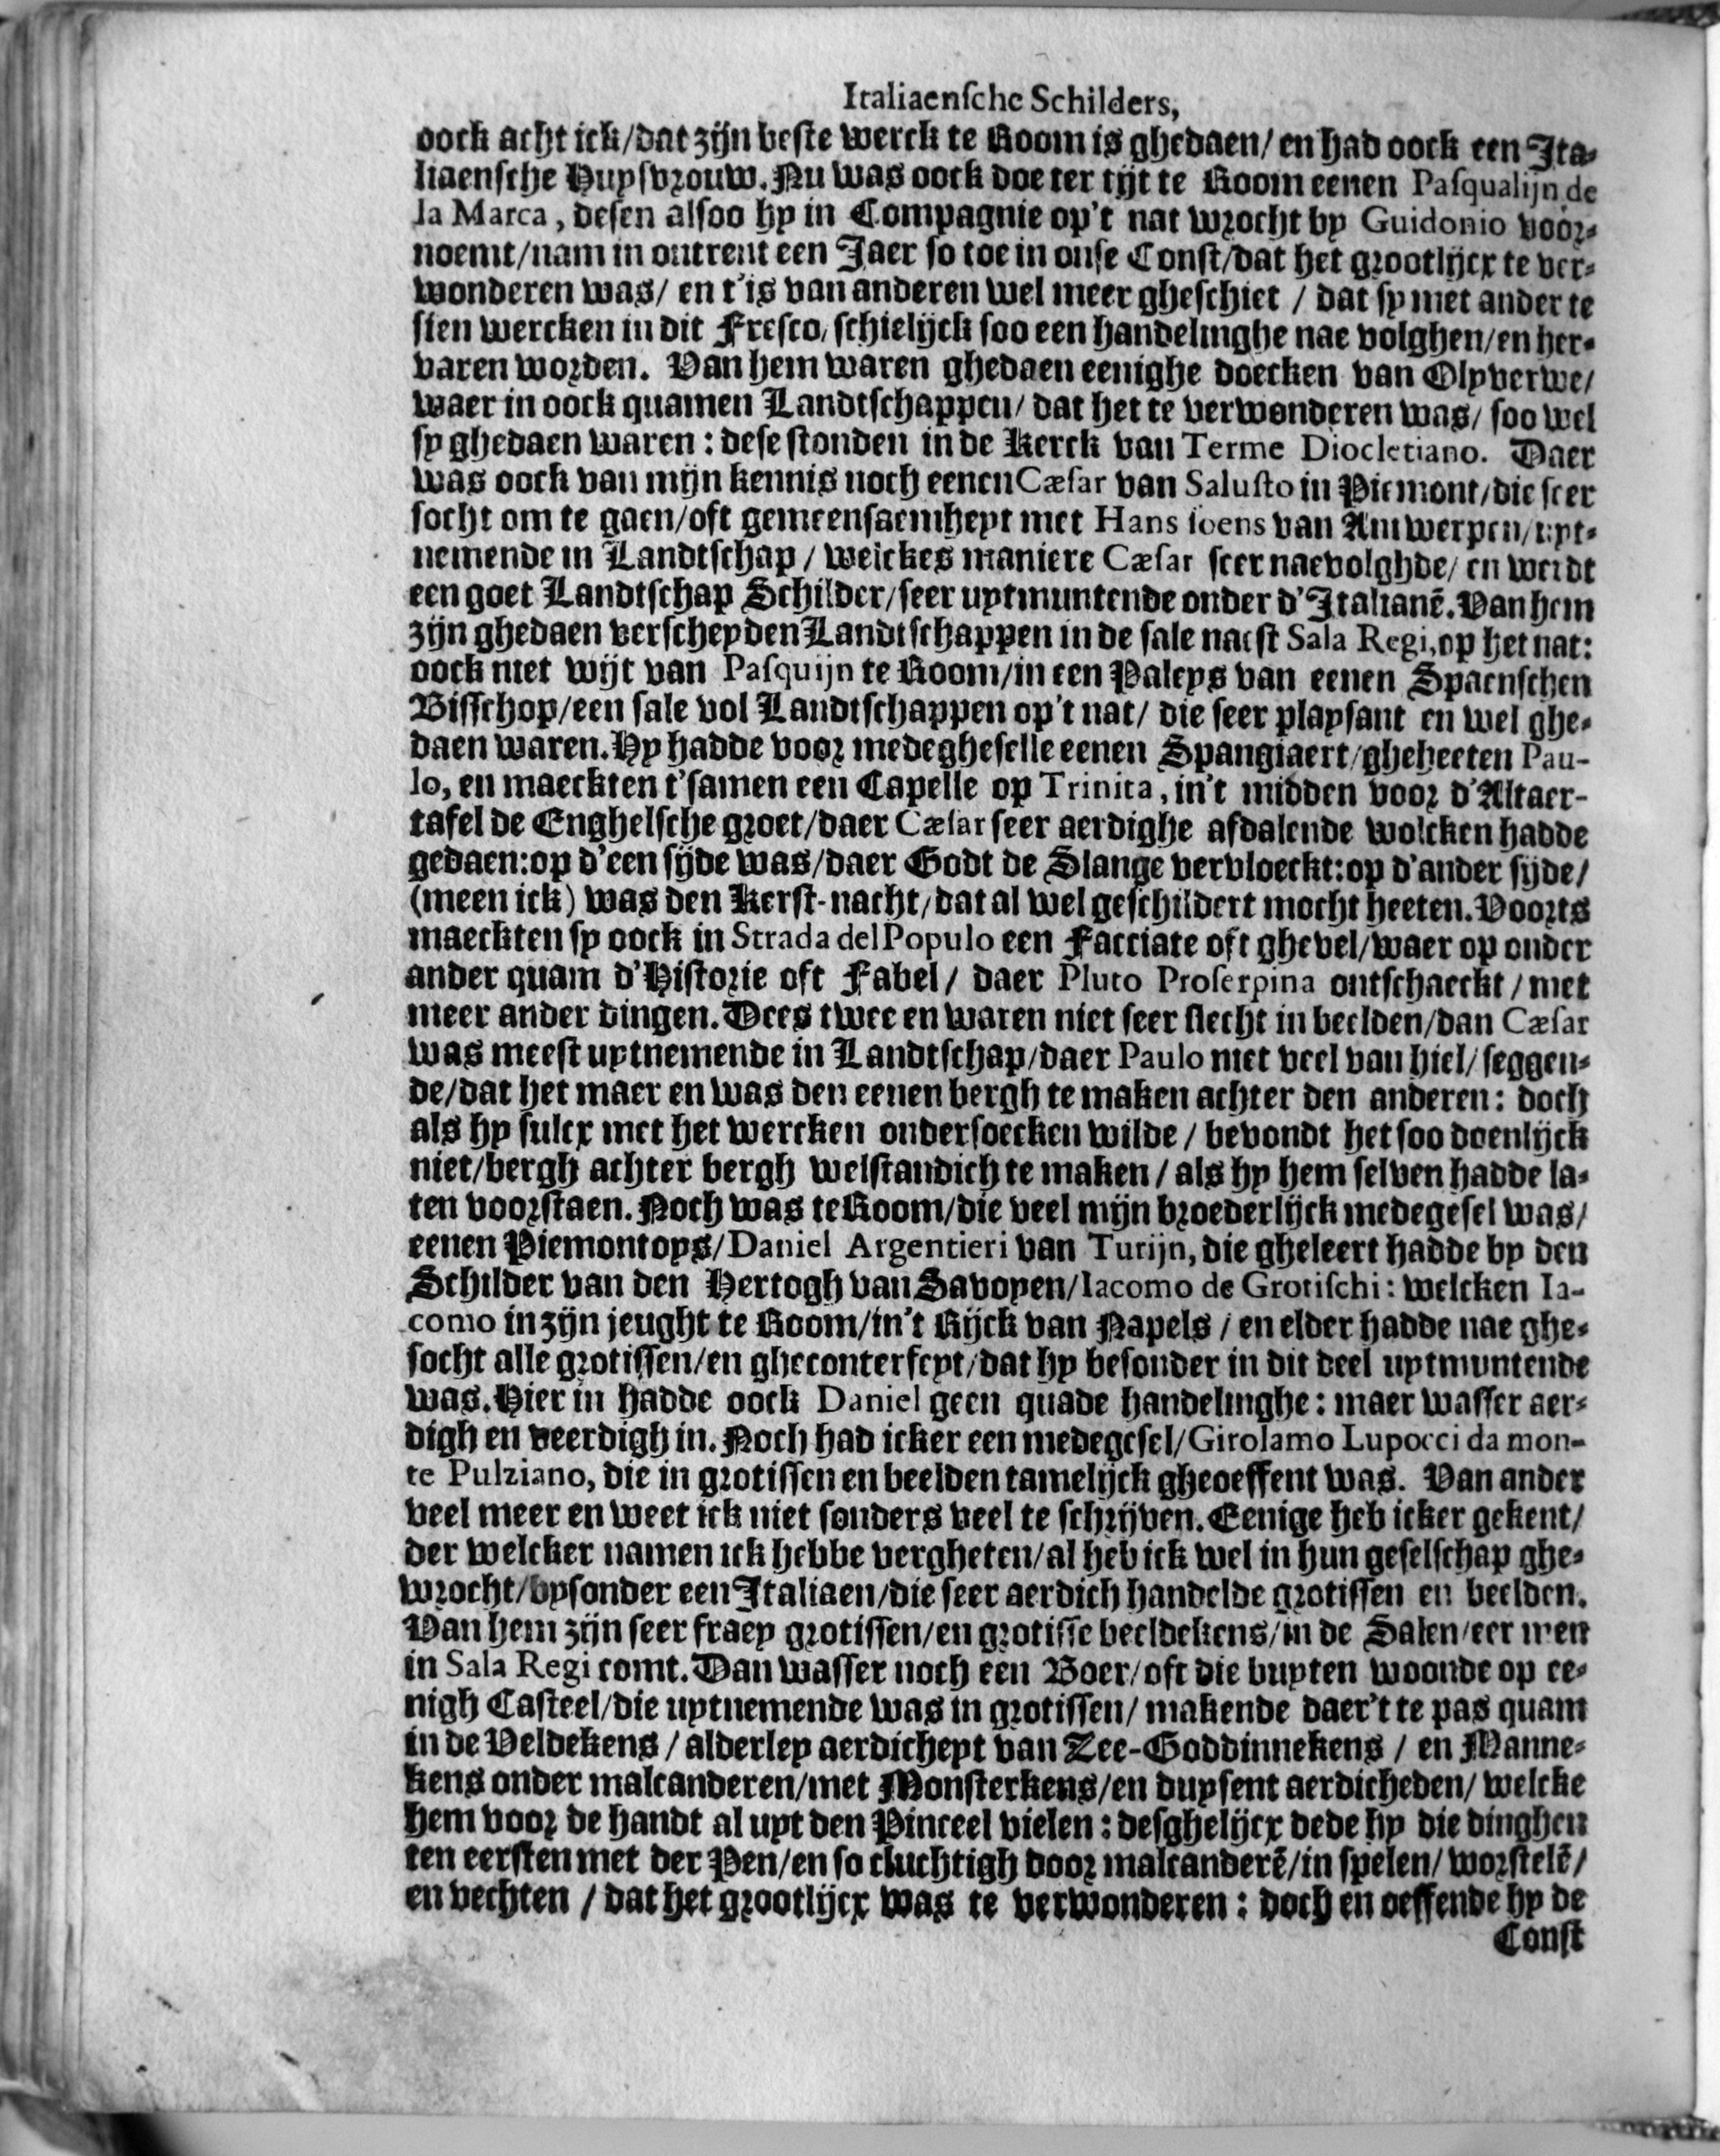 Italiaensche Schilders,
oock acht ick/dat zijn beste werck te Room is ghedaen/en had oock een Ita-
liaensche Huysvrouw. Nu was oock doe ter tijt te Room eenen Pasqualijn de
la Marca, desen alsoo hy in Compagnie op't nat wrocht by Guidonio voor-
noemt/nam in ontrent een Jaer so toe in onse Const/dat het grootlijcx te ver-
wonderen was/ en t'is van anderen wel meer gheschiet / dat sy met ander te
sien wercken in dit Fresco/schielijck soo een handelinghe nae volghen/en her-
varen worden. Van hem waren ghedaen eenighe doecken van Olyverwe/
waer in oock quamen Landtschappen/ dat het te verwonderen was/ soo wel
sy ghedaen waren: dese stonden in de Kerck van Terme Diocletiano. Daer
was oock van mijn kennis noch eenen Cæsar van Salusto in Piemont/die seer
socht om te gaen/oft gemeensaemheyt met Hans soens van Antwerpen/uyt-
nemende in Landtschap / welckes maniere Cæsar seer naevolghde/ en werdt
een goet Landtschap Schilder/seer uytmuntende onder d'Italianē. Van hem
zijn ghedaen verscheyden Landtschappen in de sale naest Sala Regi, op het nat:
oock niet wijt van Pasquijn te Room/in een Paleys van eenen Spaenschen
Bisschop/een sale vol Landtschappen op't nat/ die seer playsant en wel ghe-
daen waren. Hy hadde voor medegheselle eenen Spangiaert/gheheeten Pau-
lo, en maeckten t'samen een Capelle op Trinita, in't midden voor d'Altaer-
tafel de Enghelsche groet/daer Cæsar seer aerdighe afdalende wolcken hadde
gedaen: op d'een sijde was/daer Godt de Slange vervloeckt: op d'ander sijde/
(meen ick) was den Kerst-nacht/dat al wel geschildert mocht heeten. Voorts
maeckten sy oock in Strada del Populo een Facciate oft ghevel/waer op onder
ander quam d'Historie oft Fabel/ daer Pluto Proserpina ontschaeckt / met
meer ander dingen. Dees twee en waren niet seer slecht in beelden/dan Cæsar
was meest uytnemende in Landtschap/daer Paulo niet veel van hiel/ seggen-
de/dat het maer en was den eenen bergh te maken achter den anderen: doch
als hy sulcx met het wercken ondersoecken wilde / bevondt het soo doenlijck
niet/bergh achter bergh welstandich te maken / als hy hem selven hadde la-
ten voorstaen. Noch was te Room/die veel mijn broederlijck medegesel was/
eenen Piemontoys/Daniel Argentieri van Turijn, die gheleert hadde by den
Schilder van den Hertogh van Savoyen/Iacomo de Grotischi: welcken Ia-
como in zijn jeught te Room/in't Rijck van Napels / en elder hadde nae ghe-
socht alle grotissen/en gheconterfeyt/dat hy besonder in dit deel uytmuntende
was. Hier in hadde oock Daniel geen quade handelinghe: maer wasser aer-
digh en veerdigh in. Noch had icker een medegesel/Girolamo Lupocci da mon-
te Pulziano, die in grotissen en beelden tamelijck gheoeffent was. Van ander
veel meer en weet ick niet sonders veel te schrijven. Eenige heb icker gekent/
der welcker namen ick hebbe vergheten/al heb ick wel in hun geselschap ghe-
wrocht/bysonder een Italiaen/die seer aerdich handelde grotissen en beelden.
Van hem zijn seer fraey grotissen/en grotisse beeldekens/in de Salen/eer men
in Sala Regi comt. Dan wasser noch een Boer/oft die buyten woonde op ee-
nigh Casteel/die uytnemende was in grotissen/ makende daer't te pas quam
in de Veldekens / alderley aerdicheyt van Zee-Goddinnekens / en Manne-
kens onder malcanderen/met Monsterkens/en duysent aerdicheden/ welcke
hem voor de handt al uyt den Pinceel vielen: desghelijcx dede hy die dinghen
ten eersten met der Pen/en so cluchtigh door malcanderē/in spelen/ worstelē/
en vechten / dat het grootlijcx was te verwonderen: doch en oeffende hy de
Const